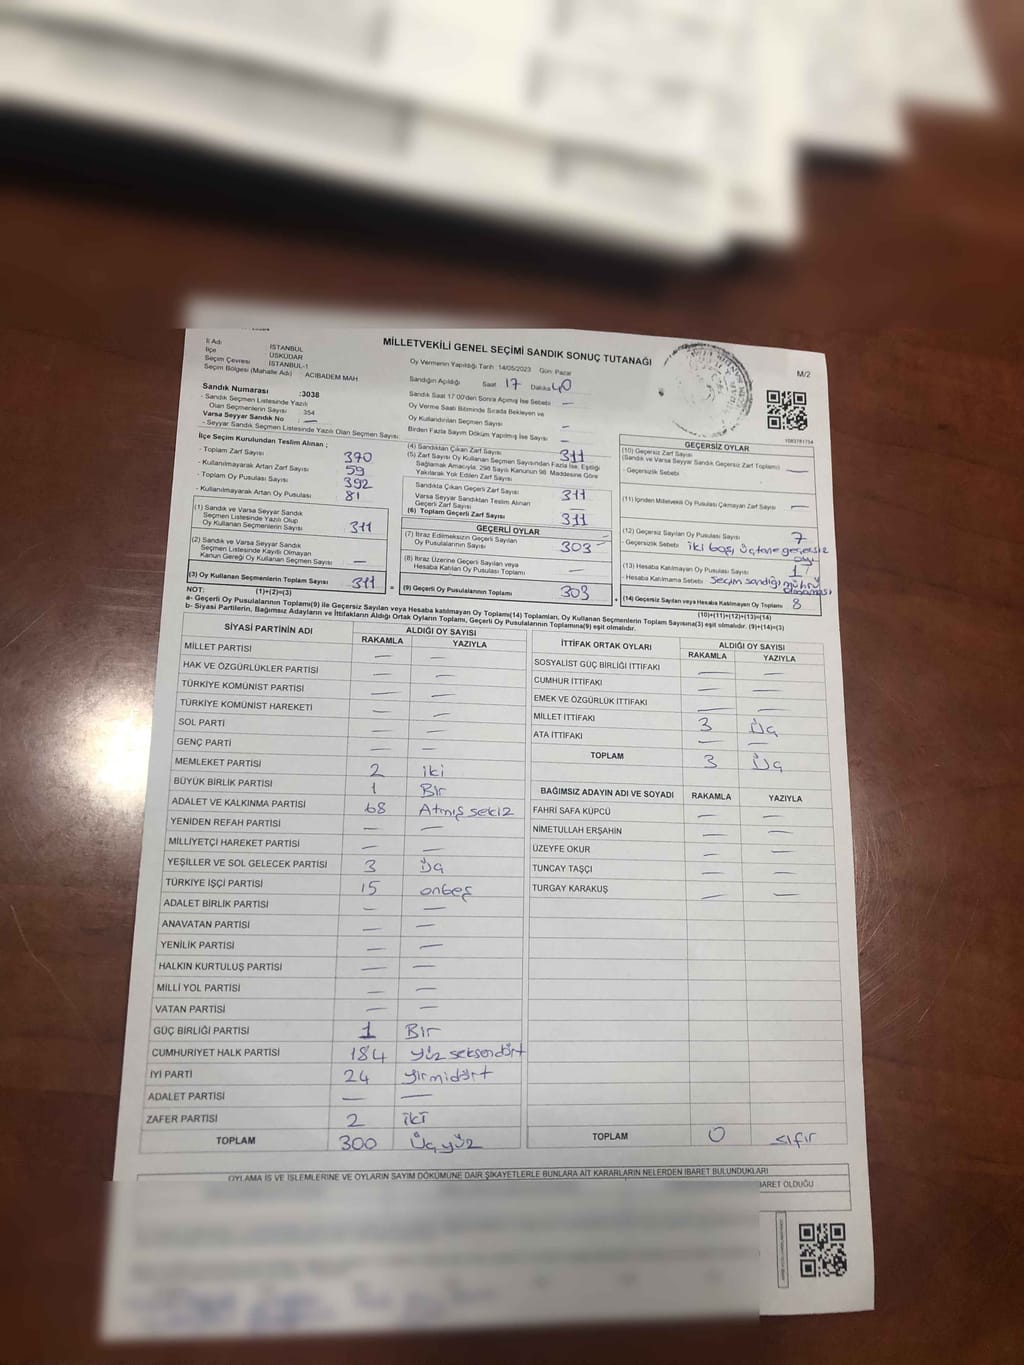 MİLLETVEKİLİ GENEL SEÇİMİ SANDIK SONUÇ TUTANAĞI
M/2
İl Adı İSTANBUL
İlçe ÜSKÜDAR
Seçim Çevresi İSTANBUL-1
Seçim Bölgesi (Mahalle Adı) ACIBADEM MAH.
Oy Vermenin Yapıldığı Tarih : 14/05/2023 Gün: Pazar
Sandığın Açıldığı Saat 17 Dakika 40
Sandık Saat 17:00'den Sonra Açılmış İse Sebebi —
Oy Verme Saati Bitiminde Sırada Bekleyen ve
Oy Kullandırılan Seçmen Sayısı —
Birden Fazla Sayım Döküm Yapılmış İse Sayısı —
Sandık Numarası :3038
- Sandık Seçmen Listesinde Yazılı
Olan Seçmenlerin Sayısı 354
Varsa Seyyar Sandık No —
- Seyyar Sandık Seçmen Listesinde Yazılı Olan Seçmen Sayısı:
İlçe Seçim Kurulundan Teslim Alınan ;
- Toplam Zarf Sayısı 370
- Kullanılmayarak Artan Zarf Sayısı 59
- Toplam Oy Pusulası Sayısı 392
- Kullanılmayarak Artan Oy Pusulası 81
(1) Sandık ve Varsa Seyyar Sandık
Seçmen Listesinde Yazılı Olup
Oy Kullanan Seçmenlerin Sayısı 311
(2) Sandık ve Varsa Seyyar Sandık
Seçmen Listesinde Kayıtlı Olmayan
Kanun Gereği Oy Kullanan Seçmen Sayısı —
(3) Oy Kullanan Seçmenlerin Toplam Sayısı 311
(1)+(2)=(3)
(4) Sandıktan Çıkan Zarf Sayısı 311
(5) Zarf Sayısı Oy Kullanan Seçmen Sayısından Fazla İse, Eşitliği
Sağlamak Amacıyla; 298 Sayılı Kanunun 98. Maddesine Göre
Yakılarak Yok Edilen Zarf Sayısı —
Sandıkta Çıkan Geçerli Zarf Sayısı 311
Varsa Seyyar Sandıktan Teslim Alınan
Geçerli Zarf Sayısı —
(6) Toplam Geçerli Zarf Sayısı 311
GEÇERLİ OYLAR
(7) İtiraz Edilmeksizin Geçerli Sayılan
Oy Pusulalarının Sayısı 303
(8) İtiraz Üzerine Geçerli Sayılan veya
Hesaba Katılan Oy Pusulası Toplamı —
= (9) Geçerli Oy Pusulalarının Toplamı 303
GEÇERSİZ OYLAR
1083781754
(10) Geçersiz Zarf Sayısı
(Sandık ve Varsa Seyyar Sandık Geçersiz Zarf Toplamı) —
- Geçersizlik Sebebi
(11) İçinden Milletvekili Oy Pusulası Çıkmayan Zarf Sayısı —
(12) Geçersiz Sayılan Oy Pusulası Sayısı 7
- Geçersizlik Sebebi iki boş, üç tane geçersiz oy
(13) Hesaba Katılmayan Oy Pusulası Sayısı 1
- Hesaba Katılmama Sebebi Seçim sandığı mührü olmaması
+ (14) Geçersiz Sayılan veya Hesaba Katılmayan Oy Toplamı 8
(10)+(11)+(12)+(13)=(14)
NOT:
a- Geçerli Oy Pusulalarının Toplamı(9) ile Geçersiz Sayılan veya Hesaba katılmayan Oy Toplamı(14) Toplamları, Oy Kullanan Seçmenlerin Toplam Sayısına(3) eşit olmalıdır. (9)+(14)=(3)
b- Siyasi Partilerin, Bağımsız Adayların ve İttifakların Aldığı Ortak Oyların Toplamı, Geçerli Oy Pusulalarının Toplamına(9) eşit olmalıdır.
SİYASİ PARTİNİN ADI ALDIĞI OY SAYISI
RAKAMLA YAZIYLA
MİLLET PARTİSİ — —
HAK VE ÖZGÜRLÜKLER PARTİSİ — —
TÜRKİYE KOMÜNİST PARTİSİ — —
TÜRKİYE KOMÜNİST HAREKETİ — —
SOL PARTİ — —
GENÇ PARTİ — —
MEMLEKET PARTİSİ 2 iki
BÜYÜK BİRLİK PARTİSİ 1 Bir
ADALET VE KALKINMA PARTİSİ 68 Atmış sekiz
YENİDEN REFAH PARTİSİ — —
MİLLİYETÇİ HAREKET PARTİSİ — —
YEŞİLLER VE SOL GELECEK PARTİSİ 3 Üç
TÜRKİYE İŞÇİ PARTİSİ 15 onbeş
ADALET BİRLİK PARTİSİ — —
ANAVATAN PARTİSİ — —
YENİLİK PARTİSİ — —
HALKIN KURTULUŞ PARTİSİ — —
MİLLİ YOL PARTİSİ — —
VATAN PARTİSİ — —
GÜÇ BİRLİĞİ PARTİSİ 1 Bir
CUMHURİYET HALK PARTİSİ 184 yüz seksendört
İYİ PARTİ 24 yirmidört
ADALET PARTİSİ — —
ZAFER PARTİSİ 2 iki
TOPLAM 300 Üçyüz
İTTİFAK ORTAK OYLARI ALDIĞI OY SAYISI
RAKAMLA YAZIYLA
SOSYALİST GÜÇ BİRLİĞİ İTTİFAKI — —
CUMHUR İTTİFAKI — —
EMEK VE ÖZGÜRLÜK İTTİFAKI — —
MİLLET İTTİFAKI 3 Üç
ATA İTTİFAKI — —
TOPLAM 3 Üç
BAĞIMSIZ ADAYIN ADI VE SOYADI RAKAMLA YAZIYLA
FAHRİ SAFA KÜPCÜ — —
NİMETULLAH ERŞAHİN — —
ÜZEYFE OKUR — —
TUNCAY TAŞÇI — —
TURGAY KARAKUŞ — —
TOPLAM 0 sıfır
OYLAMA İŞ VE İŞLEMLERİNE VE OYLARIN SAYIM DÖKÜMÜNE DAİR ŞİKAYETLERLE BUNLARA AİT KARARLARIN NELERDEN İBARET BULUNDUKLARI
BARET OLDUĞU